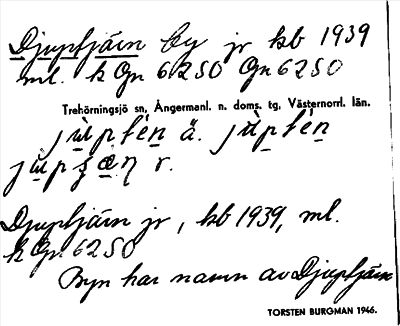 Djuptjärn by jr kb 1939
ml. k Gn 6250 Gn 6250
Trehörningsjö sn, Ångermanl. n. doms. tg, Västernorrl. län.
ä.
r.
Djuptjärn jr, kb 1939, ml.
k Gn 6250
Byn har namn av Djuptjärn
TORSTEN BURGMAN 1946.